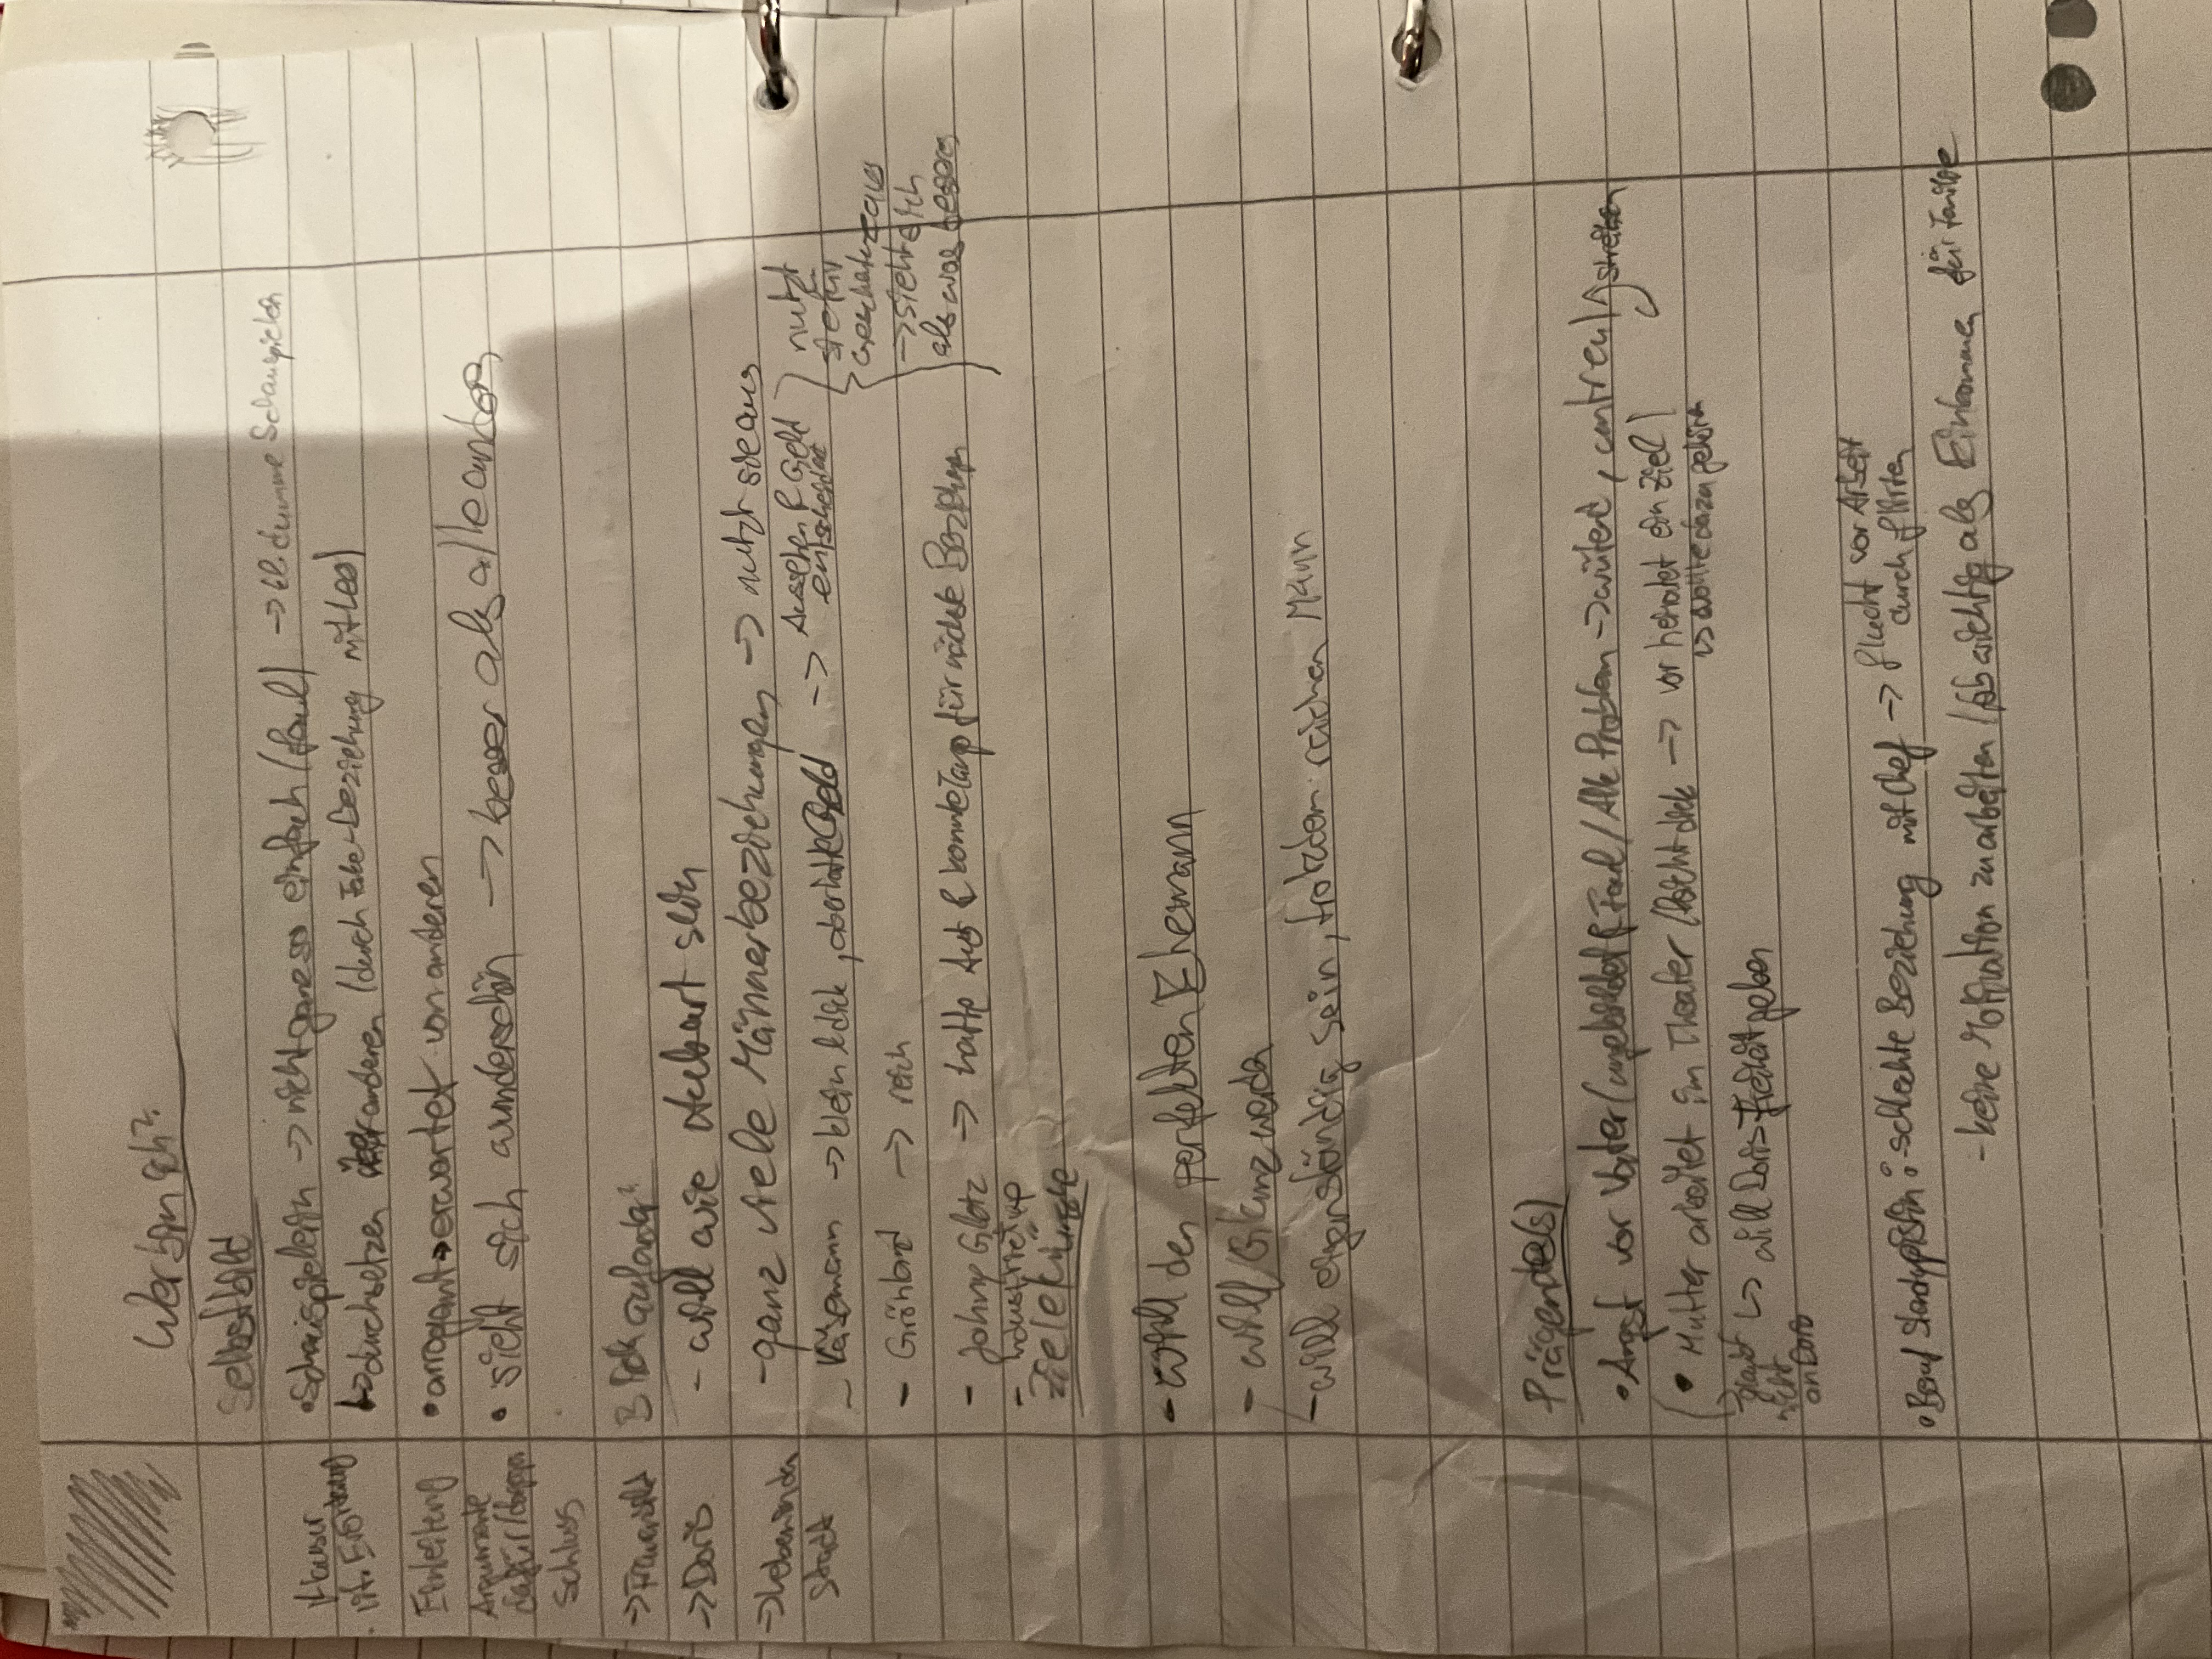 Wer bin ich?
Selbstbild
•Schauspielerin → nicht ganz so einfach (faul) → dumme Schauspielerin
↳ durchsetzen über anderen (durch Fake-Beziehung mit Leo)
•arrogant → erwartet von anderen
• sieht sich wunderschön → besser als alle anderen
Klausur
lit. Erörterung
Einleitung
Argumente
dafür/dagegen
Schluss
→Frauenbild
→Doris
→Leben in der
Stadt
Blick auf andere
- will wie Hubert sein
- ganz viele Männerbeziehungen → nutzt sie aus
- Käsemann → klein & dick, aber hatte Geld → Aussehen & Geld
entscheidet
- → reich
- Johny Glotz → hatte Auto & konnte Tango für nächste Beziehung
- Industrietyp
nutzt
sie für
Geschenke aus
→sieht sich
als was besseres
Ziele &
- will den perfekten Ehemann
- will Glanz werden
- will eigenständig sein, trotzdem reichen Mann
Prägende(s)
•Angst vor Vater (ungebildet & Faul / Alk Problem → wütend, untreu) streiten
• Mutter arbeitet im Theater / leicht dick → vor heiratet ein Ziel
↳ wollte dazu gehören
→ glaubt
nicht
an Doris
↳ will Doris Freiheit geben
•Beruf Stenotypistin: - schlechte Beziehung mit Chef → flucht vor Arbeit
durch flirten
- keine Motivation zu arbeiten / Job wichtig als Einkommen für Familie